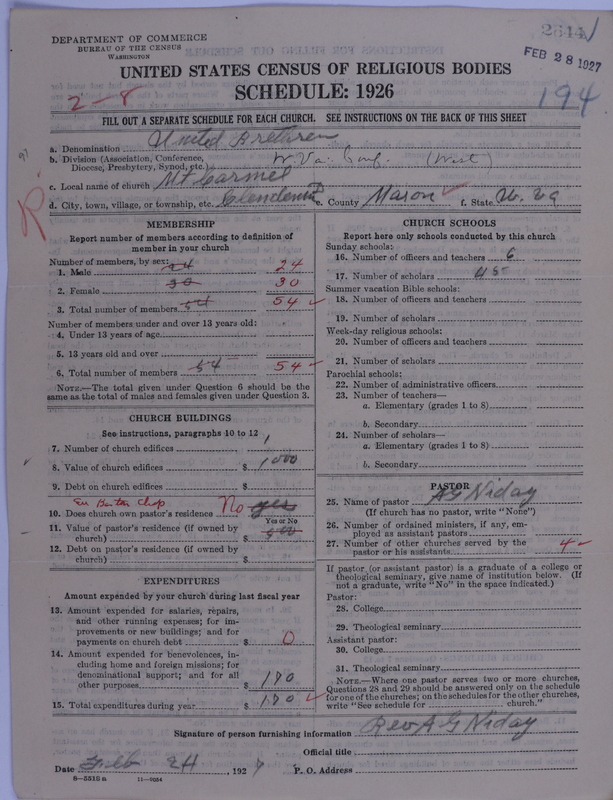 2844
DEPARTMENT OF COMMERCE
BUREAU OF THE CENSUS
WASHINGTON
FEB 28 1927
UNITED STATES CENSUS OF RELIGIOUS BODIES
SCHEDULE: 1926
2-8
194
FILL OUT A SEPARATE SCHEDULE FOR EACH CHURCH. SEE INSTRUCTIONS ON THE BACK OF THIS SHEET
a. Denomination United Brethren
b. Division (Association, Conference, Diocese, Presbytery, Synod, etc.) W Va. Conf. (West)
c. Local name of church Mt Carmel
d. City, town, village, or township, etc. Clendenin e. County Mason f. State W. Va
MEMBERSHIP
Report number of members according to definition of member in your church
Number of members, by sex:
1. Male 24 24
2. Female 30 30
3. Total number of members 54 54
Number of members under and over 13 years old:
4. Under 13 years of age
5. 13 years old and over
6. Total number of members 54 54
NOTE.—The total given under Question 6 should be the same as the total of males and females given under Question 3.
CHURCH BUILDINGS
See instructions, paragraphs 10 to 12
7. Number of church edifices 1
8. Value of church edifices $ 1000
9. Debt on church edifices $
10. Does church own pastor's residence? No yes
Yes or No
11. Value of pastor's residence (if owned by church) $
12. Debt on pastor's residence (if owned by church) $
EXPENDITURES
Amount expended by your church during last fiscal year
13. Amount expended for salaries, repairs, and other running expenses; for improvements or new buildings; and for payments on church debt $ 0
14. Amount expended for benevolences, including home and foreign missions; for denominational support; and for all other purposes $ 170
15. Total expenditures during year $ 170
CHURCH SCHOOLS
Report here only schools conducted by this church
Sunday schools:
16. Number of officers and teachers 6
17. Number of scholars 45
Summer vacation Bible schools:
18. Number of officers and teachers
19. Number of scholars
Week-day religious schools:
20. Number of officers and teachers
21. Number of scholars
Parochial schools:
22. Number of administrative officers
23. Number of teachers—
a. Elementary (grades 1 to 8)
b. Secondary
24. Number of scholars—
a. Elementary (grades 1 to 8)
b. Secondary
PASTOR
25. Name of pastor A G Niday
(If church has no pastor, write "None")
26. Number of ordained ministers, if any, employed as assistant pastors
27. Number of other churches served by the pastor or his assistants 4
If pastor (or assistant pastor) is a graduate of a college or theological seminary, give name of institution below. (If not a graduate, write "No" in the space indicated.)
Pastor:
28. College
29. Theological seminary
Assistant pastor:
30. College
31. Theological seminary
NOTE.—Where one pastor serves two or more churches, Questions 28 and 29 should be answered only on the schedule for one of the churches; on the schedules for the other churches, write "See schedule for church."
Signature of person furnishing information Rev A G Niday
Official title
Date Feb 24, 1927 P. O. Address
8-5515 a 11-9054